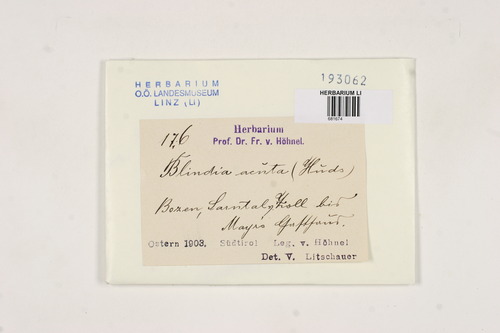 HERBARIUM
O.Ö. LANDESMUSEUM
LINZ (LI)
193062
HERBARIUM LI
681674
176
Herbarium
Prof. Dr. Fr. v. Höhnel.
Blindia acuta (Huds)
Bozen, Sarntal, Zoll bis
Mayrs Gasthaus.
Ostern 1903. Südtirol Leg. v. Höhnel
Det. V. Litschauer